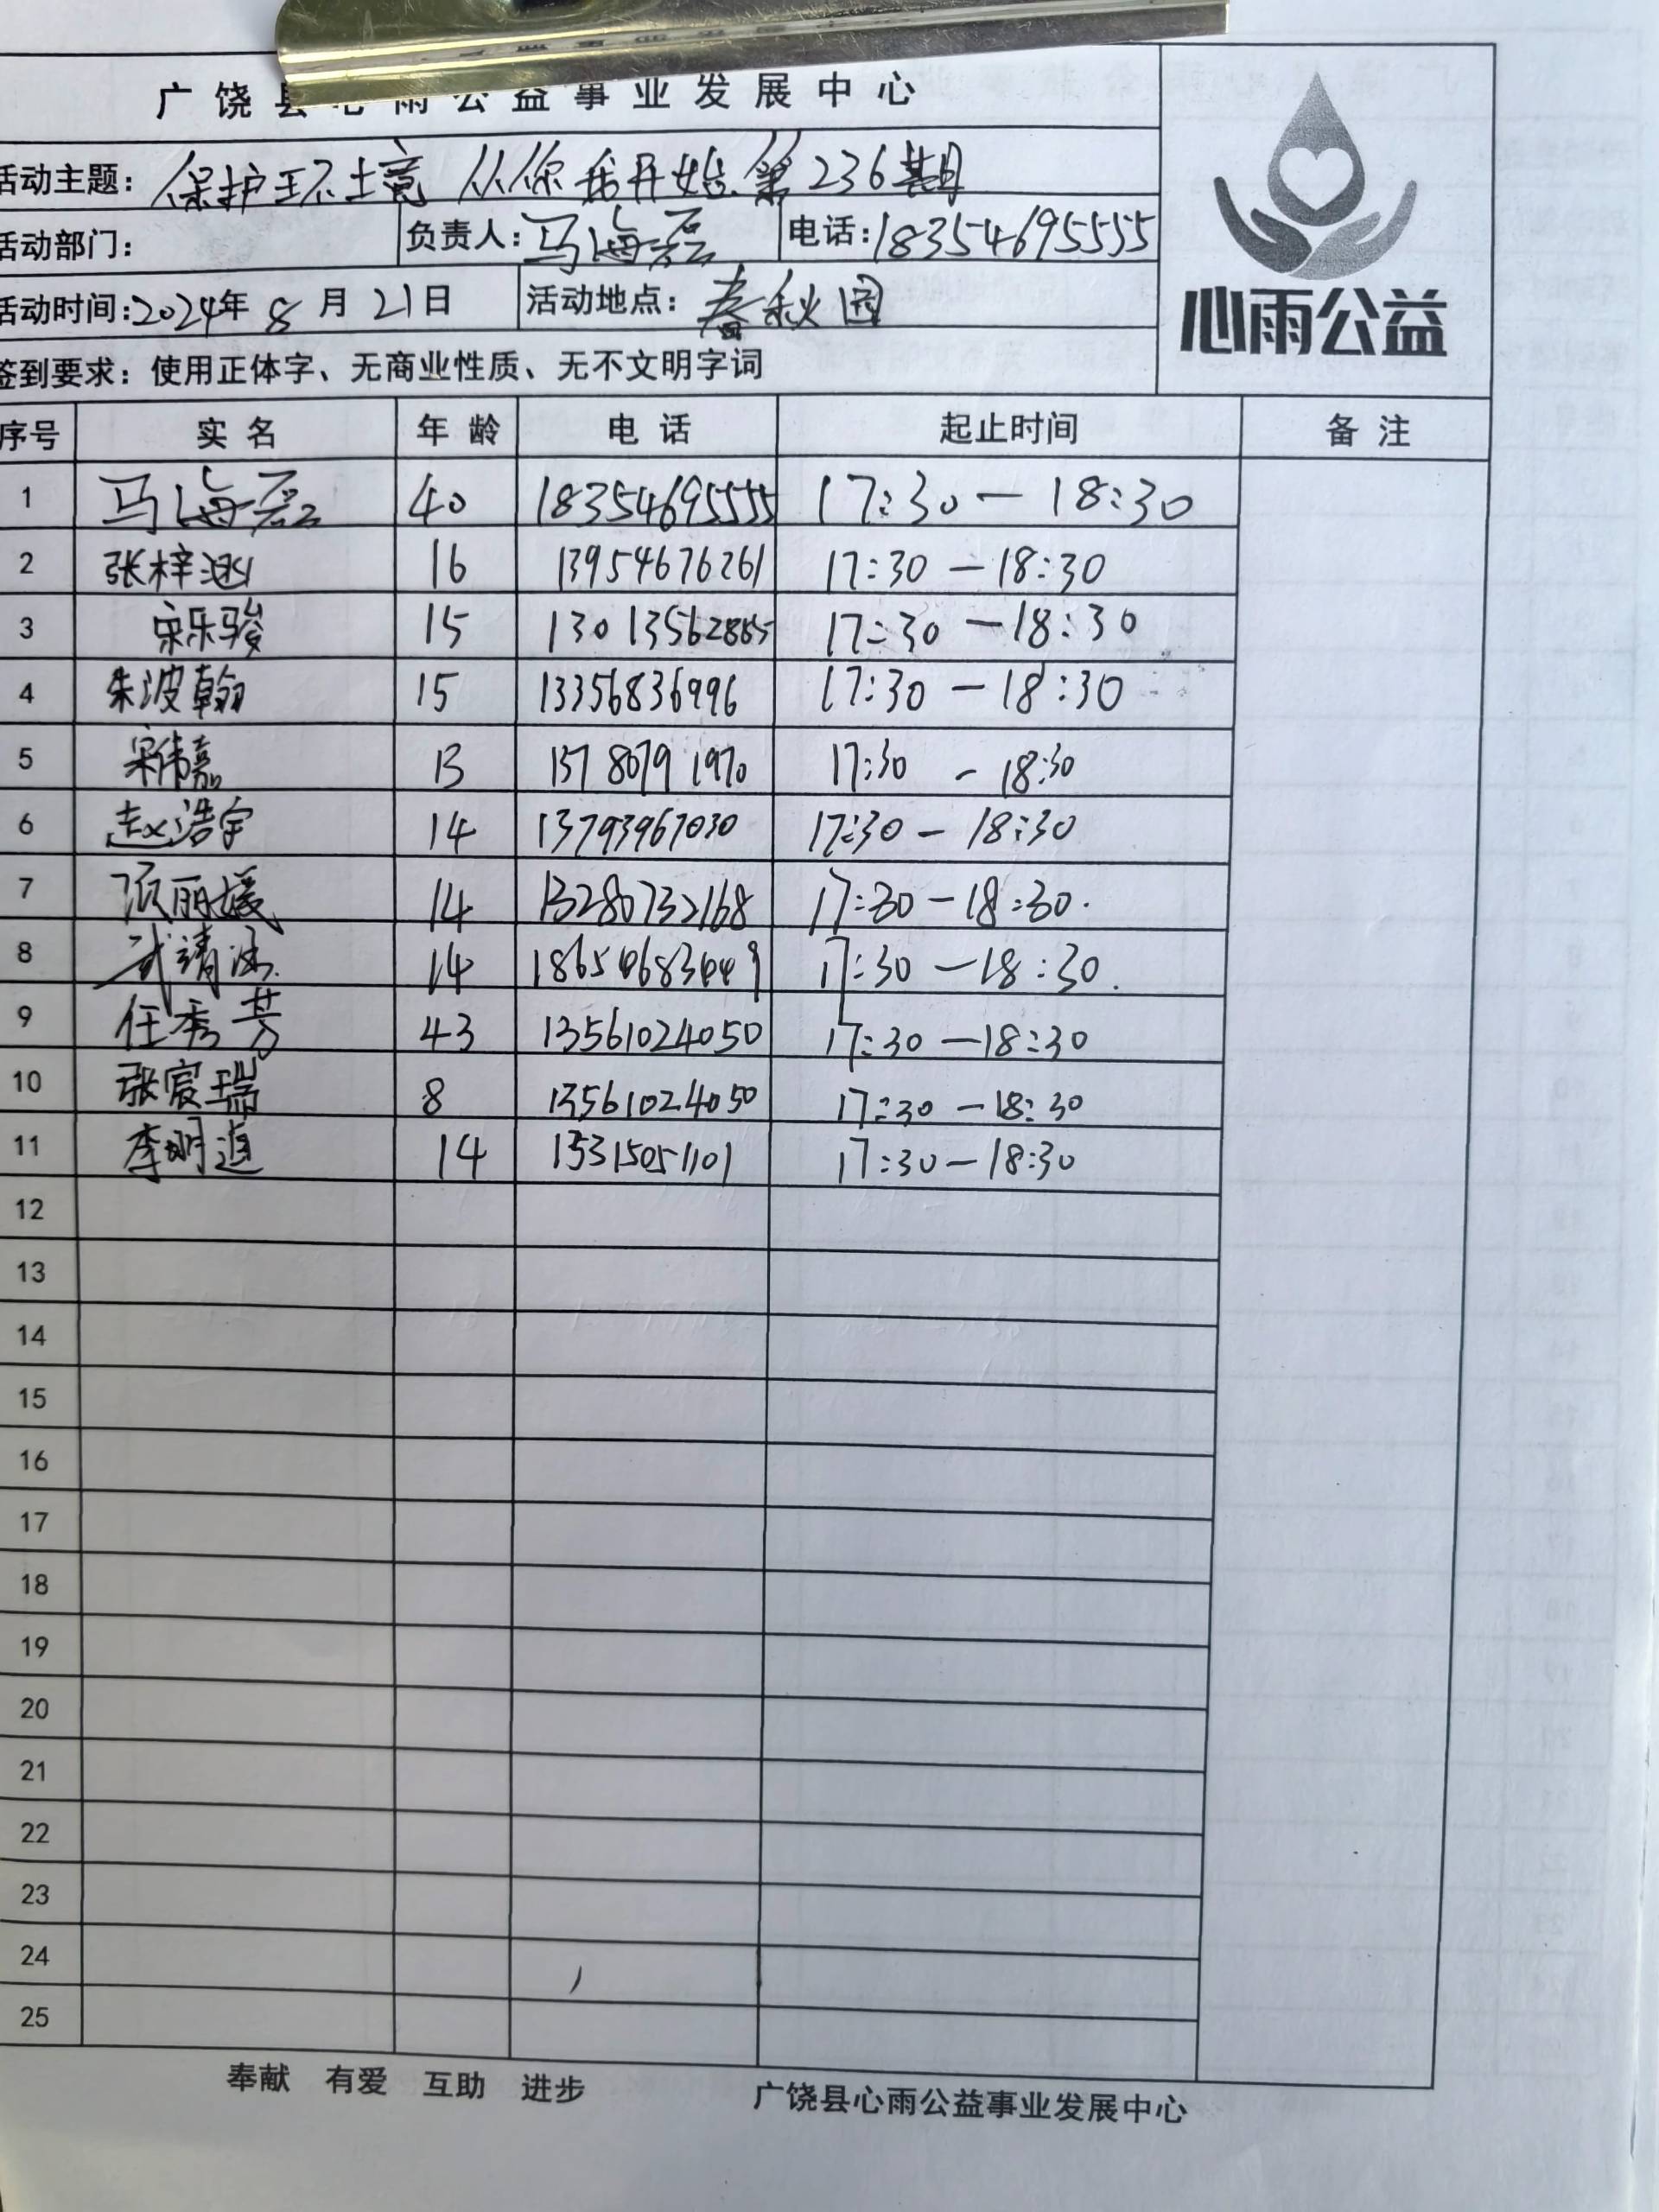 广饶县心雨公益事业发展中心
活动主题: 保护环境 从你我开始 第236期
活动部门: 负责人: 马海磊 电话: 18354695555
活动时间: 2024年 8 月 21日 活动地点: 春秋园
签到要求: 使用正体字、无商业性质、无不文明字词
心雨公益
序号 实 名 年 龄 电 话 起止时间 备 注
1 马海磊 40 18354695555 17:30 — 18:30
2 张梓 16 13954676261 17:30 — 18:30
3 宋乐骏 15 17:30 — 18:30
4 朱波翰 15 13356836996 17:30 — 18:30
5 宋伟嘉 13 17:30 - 18:30
6 赵浩宇 14 13793967030 17:30 — 18:30
7 丽媛 14 13280732168 17:30 — 18:30.
8 武靖 14 17:30 — 18:30.
9 任秀芳 43 13561024050 17:30 — 18:30
10 张宸瑞 8 13561024050 17:30 — 18:30
11 李明 14 17:30 — 18:30
12
13
14
15
16
17
18
19
20
21
22
23
24
25
奉献 有爱 互助 进步 广饶县心雨公益事业发展中心